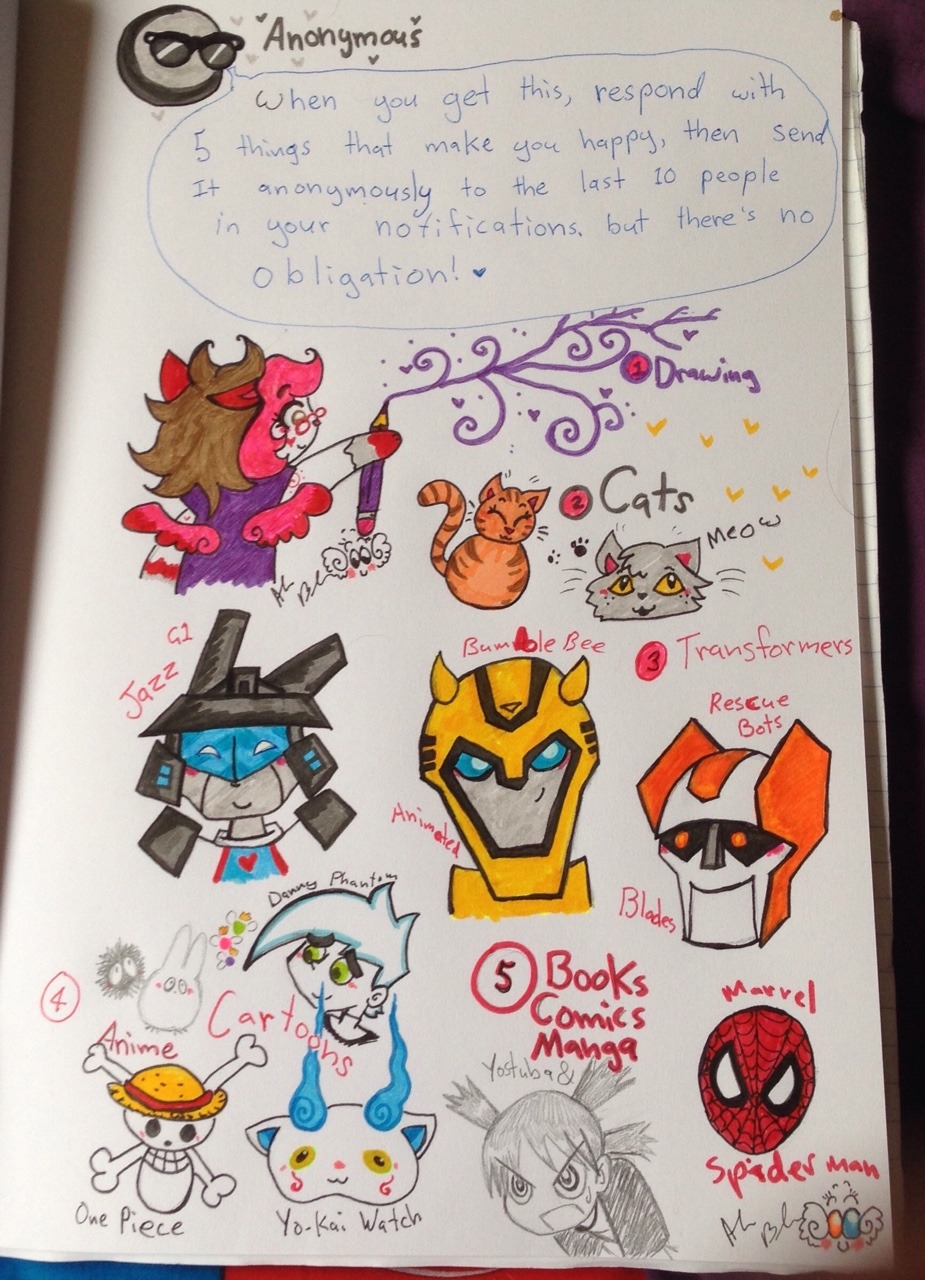 Anonymous
When you get this, respond with
5 things that make you happy, then send
It anonymously to the last 10 people
in your notifications. but there's no
obligation!
1 Drawing
2 Cats
Meow
G1
Jazz
Bumble Bee
Animated
3 Transformers
Rescue
Bots
Blades
4
Anime
Cartoons
Danny Phantom
One Piece
Yo-Kai Watch
5 Books
Comics
Manga
Yostuba &
Marvel
Spider man